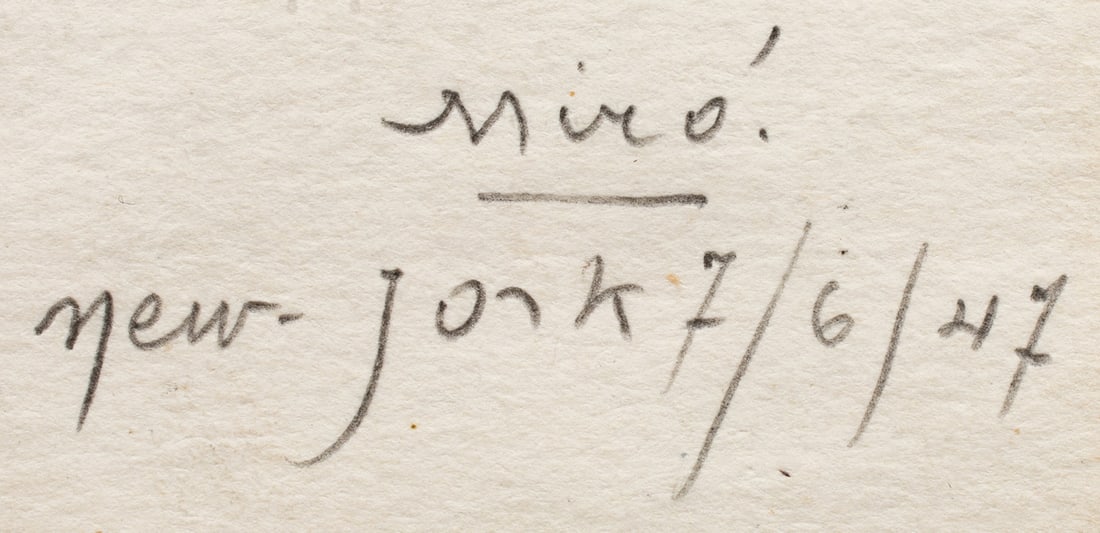 Miró.
New-York 7/6/47